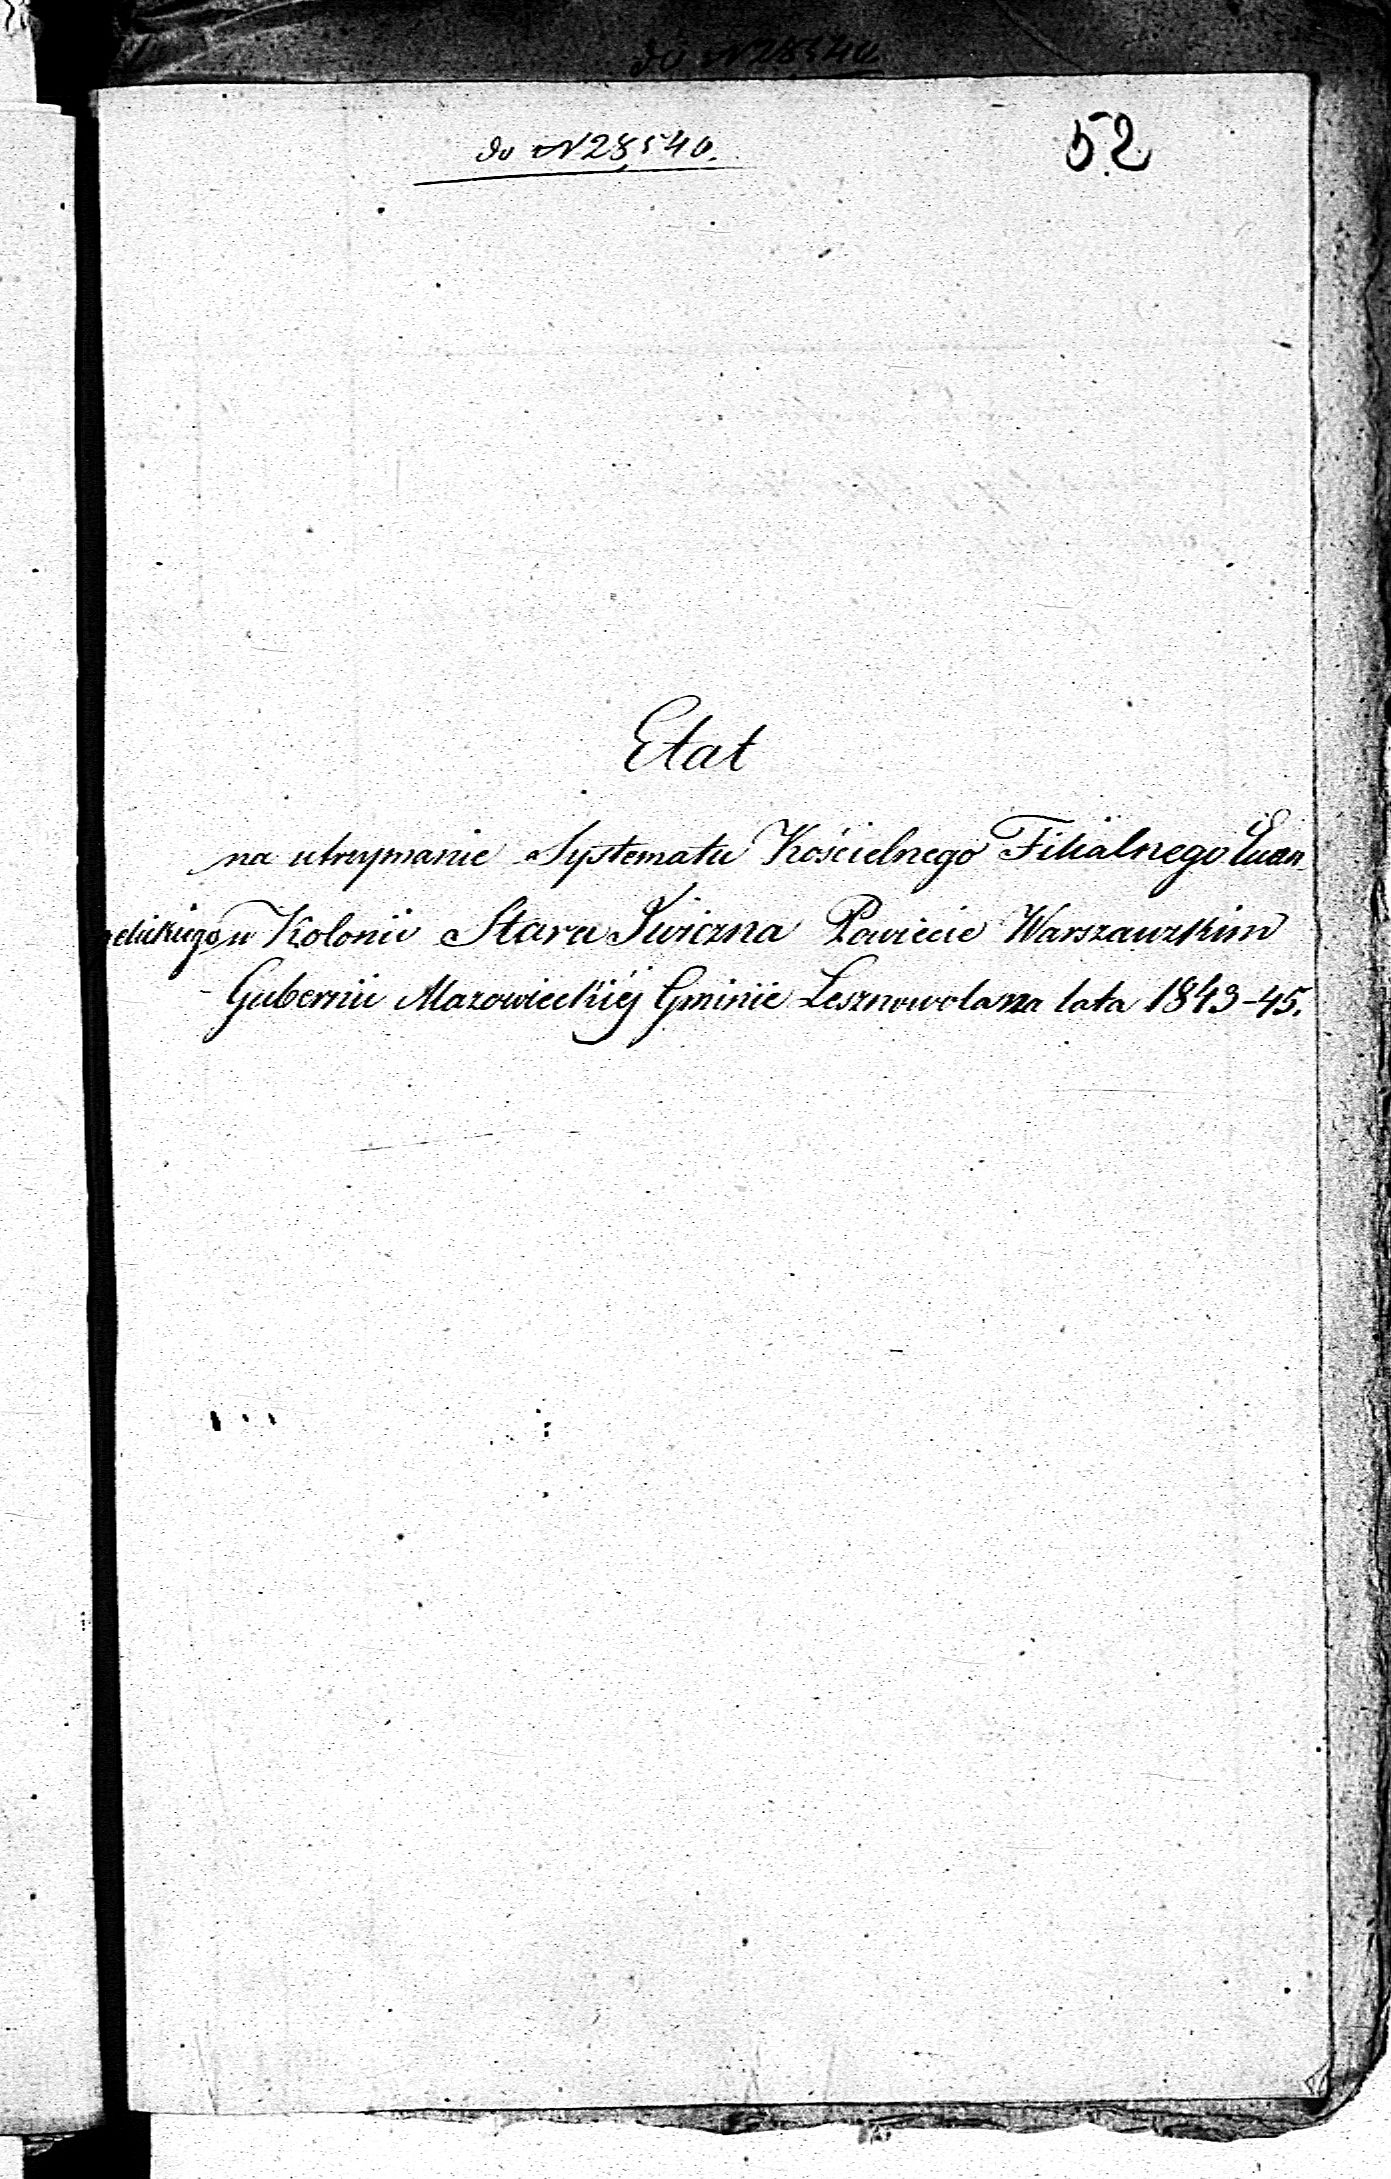 do N 28540.
52
Etat
na utrzymanie Systematu Kościelnego Filialnego Ewan
gelickiego w Kolonii Stara Iwiczna Powiecie Warszawskim
Gubernii Mazowieckiéj Gminie Lesznowola na lata 1843-45.